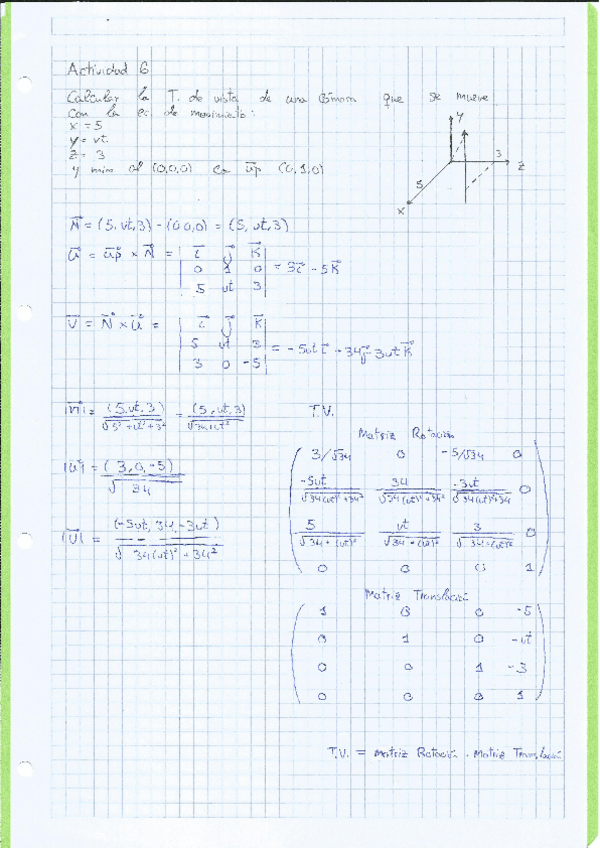 Actividad 6
Calcular la T. de vista de una Cámara que se mueve
Con la ec. de movimiento:
x = 5
y = vt.
z = 3
y mira al (0,0,0) con up (0,1,0)
y
3
z
5
x
N = (5, vt, 3) - (0,0,0) = (5, vt, 3)
U = up × N = | i j k |
| 0 1 0 | = 3i - 5k
| 5 vt 3 |
V = N × U = | i j k |
| 5 vt 3 | = -5vt i + 34j - 3vt k
| 3 0 -5 |
|N| = (5, vt, 3) / √(5² + vt² + 3²) = (5, vt, 3) / √(34 + vt²)
|U| = (3, 0, -5) / √34
|V| = (-5vt, 34, -3vt) / √(34(vt)² + 34²)
T.V.
Matriz Rotación
3/√34 0 -5/√34 0
-5vt/√(34(vt)²+34²) 34/√(34(vt)²+34²) -3vt/√(34(vt)²+34) 0
5/√(34+(vt)²) vt/√(34+(vt)²) 3/√(34+(vt)²) 0
0 0 0 1
Matriz Translación
1 0 0 -5
0 1 0 -vt
0 0 1 -3
0 0 0 1
T.V. = Matriz Rotación . Matriz Translación